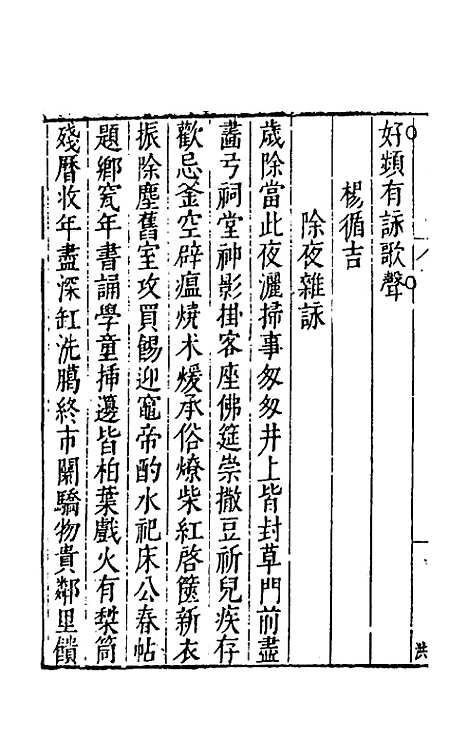 好頻有詠歌聲
楊循吉
除夜雜詠
歲除當此夜灑掃事匆匆井上皆封草門前盡
畵弓祠堂神影掛客座佛筵崇撒豆祈兒疾存
歡忌釜空辟瘟燒术煖承俗燎柴紅啓篋新衣
振除塵舊室攻買餳迎竈帝酌水祀床公春帖
題鄉瓮年書誦學童揷邊皆柏葉戲火有梨筒
殘曆收年盡深缸洗臈終市闤驕物貴鄰里饋
洪